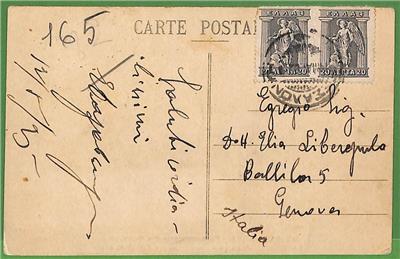 165
CARTE POSTALE
ΕΛΛΑΣ ΕΛΛΑΣ
20 ΛΕΠΤΑ 20 20 ΛΕΠΤΑ 20
Saluti cordia-
lissimi
Egregio Sig.
Dott. Elia Liberopulo
Balbi 5
Genova
Italia